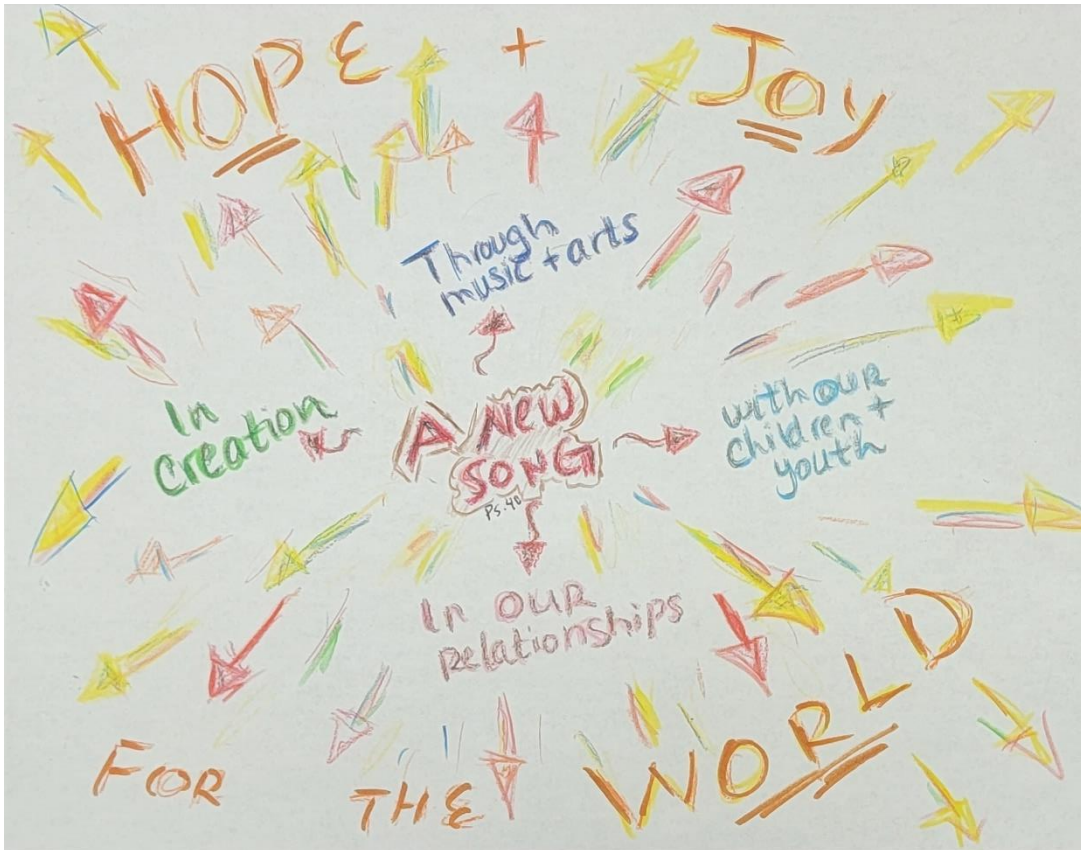 HOPE + Joy
Through
music + arts
In
creation
A New
SONG
Ps. 40
with our
children +
youth
In our
relationships
FOR THE WORLD